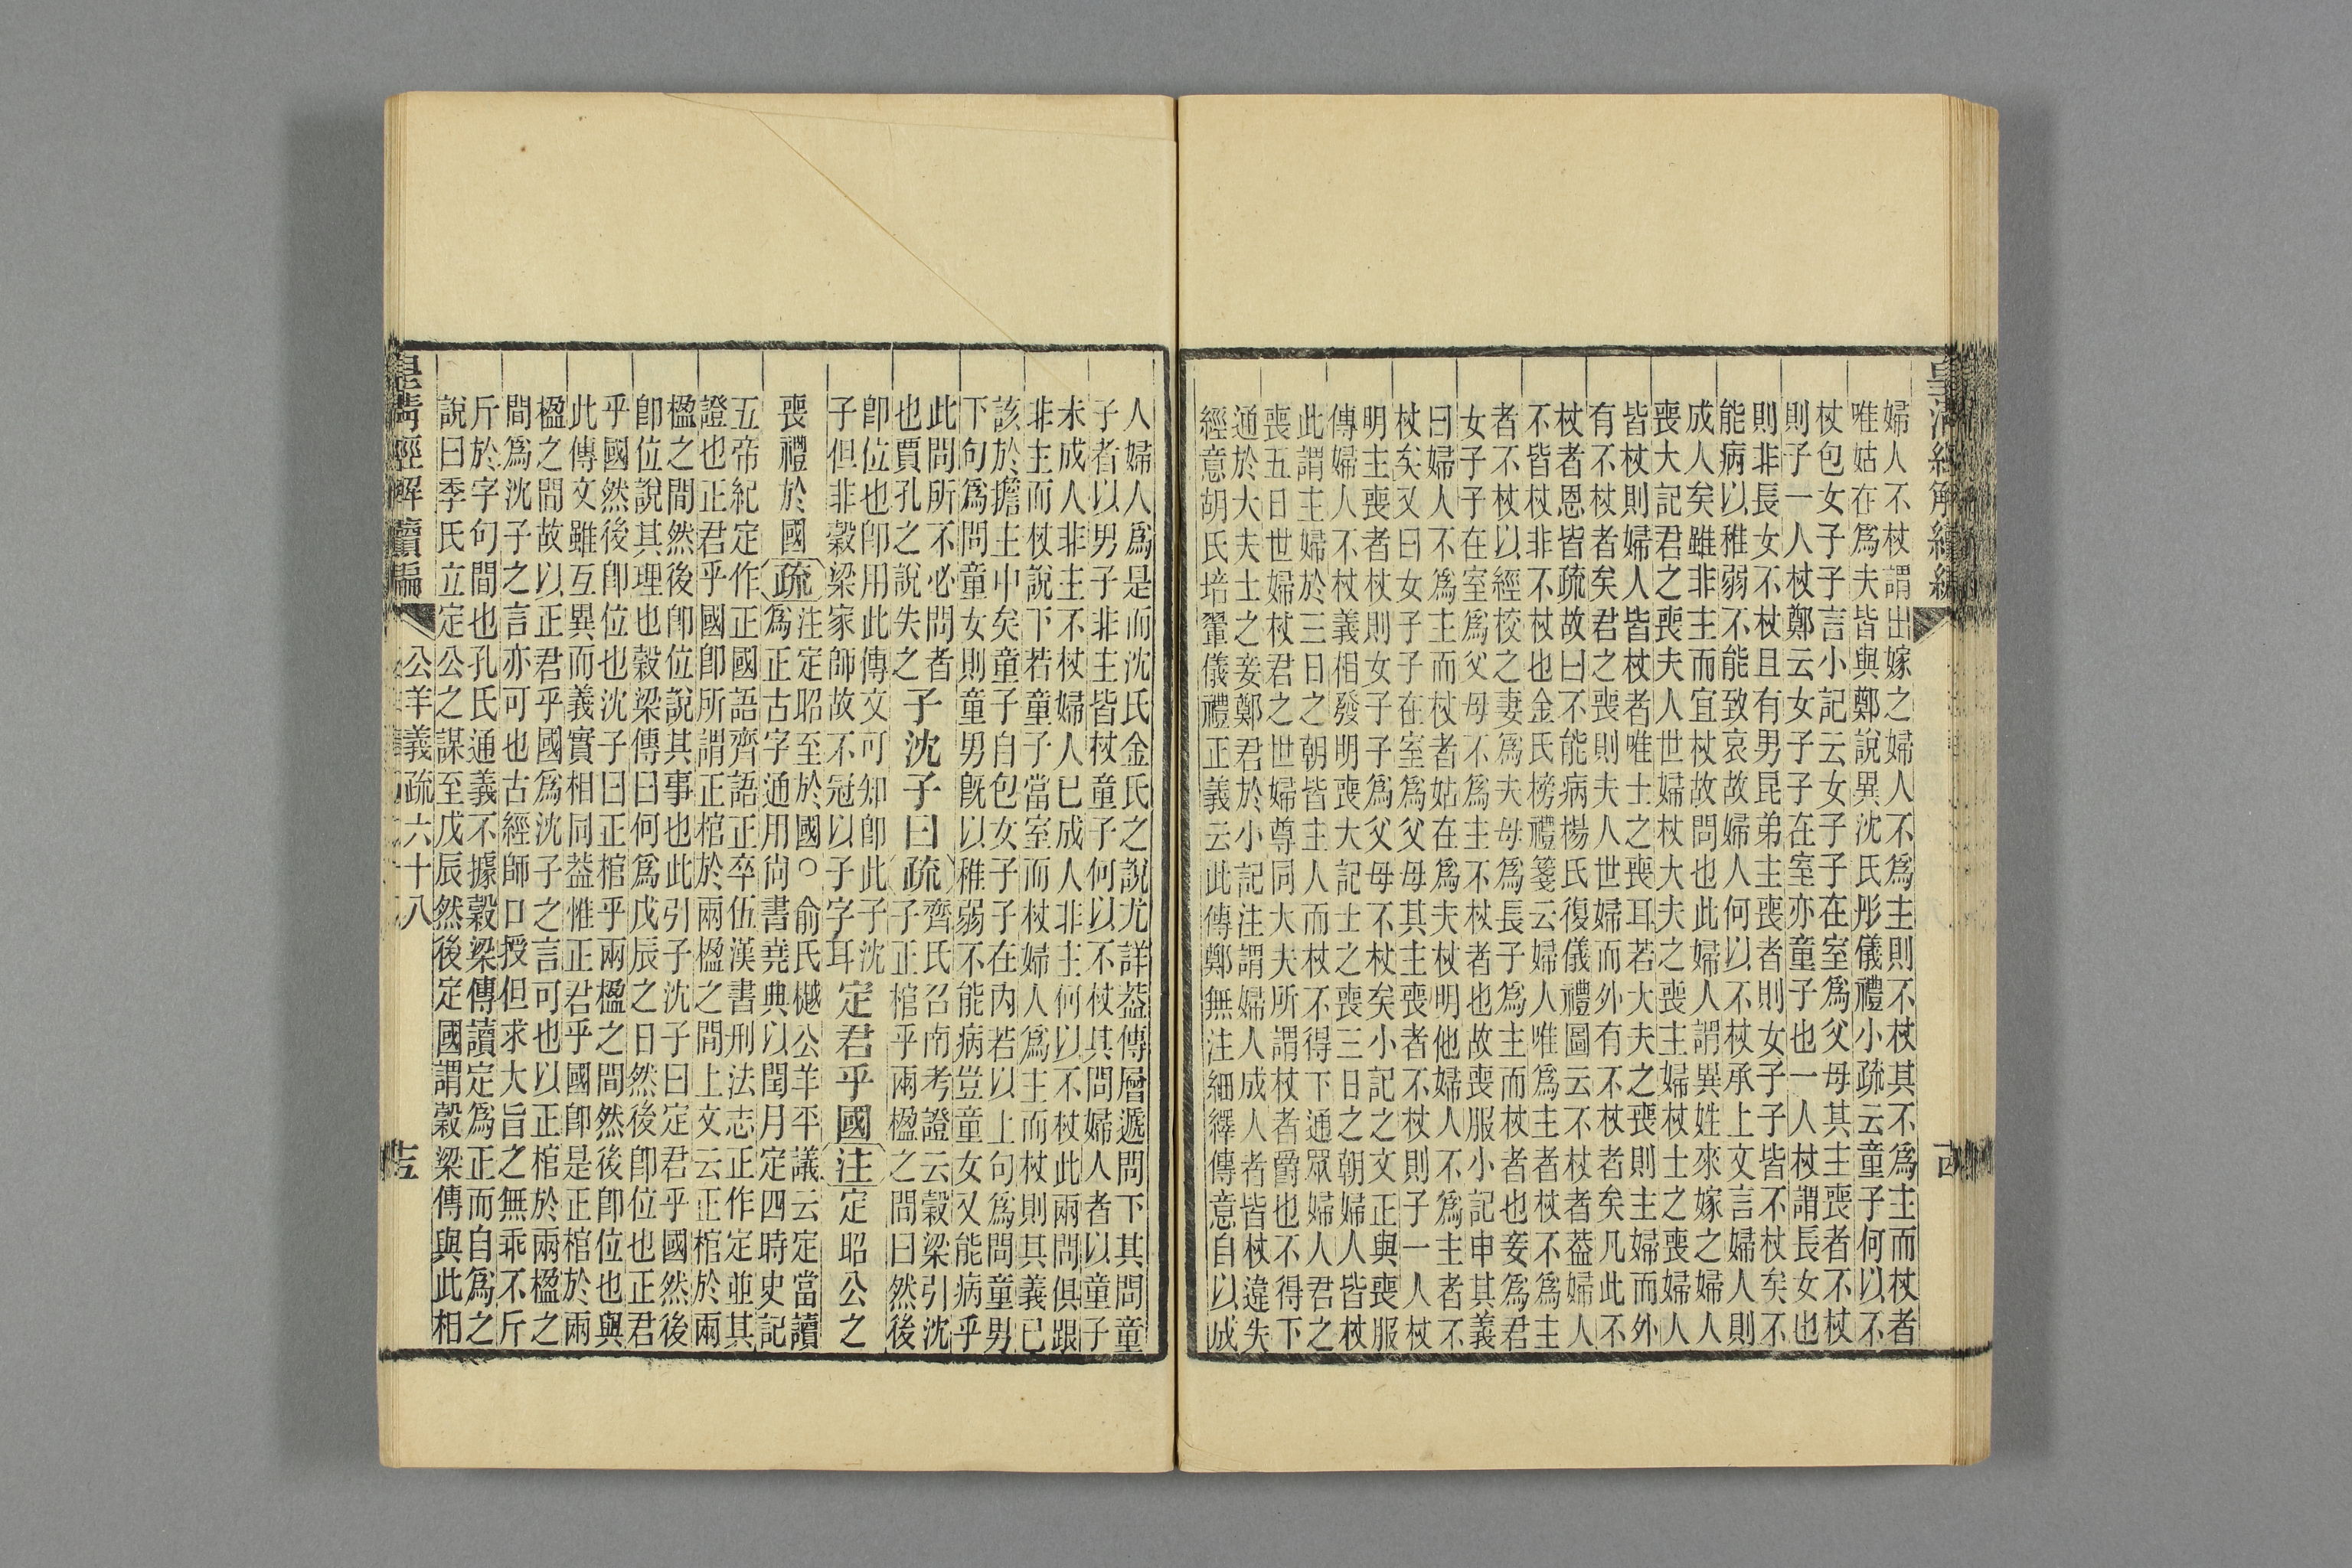 皇清經解續編
婦人不杖謂出嫁之婦人不爲主則不杖其不爲主而杖者
唯姑在爲夫皆與鄭說異沈氏彤儀禮小疏云童子何以不
杖包女子子言小記云女子子在室爲父母其主喪者不杖
則子一人杖鄭云女子子在室亦童子也一人杖謂長女也
則非長女不杖且有男昆弟主喪者則女子子皆不杖矣不
能病以稚弱不能致哀故婦人何以不杖承上文言婦人則
成人矣雖非主而宜杖故問也此婦人謂異姓來嫁之婦人
喪大記君之喪夫人世婦杖大夫之喪主婦杖士之喪婦人
皆杖則婦人皆杖者唯士之喪耳若大夫之喪則主婦而外
有不杖者矣君之喪則夫人世婦而外有不杖者矣凡此不
杖者恩皆疏故曰不能病楊氏復儀禮圖云不杖者葢婦人
不皆杖非不杖也金氏榜禮箋云婦人唯爲主者杖不爲主
者不杖以經校之妻爲夫母爲長子爲主而杖者也妾爲君
女子子在室爲父母不爲主不杖者也故喪服小記申其義
曰婦人不爲主而杖者姑在爲夫杖明他婦人不爲主者不
杖矣又曰女子子在室爲父母其主喪者不杖則子一人杖
明主喪者杖則女子子爲父母不杖矣小記之文正與喪服
傳婦人不杖義相發明喪大記士之喪三日之朝婦人皆杖
此謂主婦於三日之朝皆主人而杖不得下通眾婦人君之
喪五日世婦杖君之世婦尊同大夫所謂杖者爵也不得下
通於大夫士之妾鄭君於小記注謂婦人成人者皆杖違失
經意胡氏培翬儀禮正義云此傳鄭無注細繹傳意自以成
人婦人爲是而沈氏金氏之說尤詳葢傳層遞問下其問童
子者以男子非主皆杖童子何以不杖其問婦人者以童子
未成人非主不杖婦人已成人非主何以不杖此兩問俱跟
非主而杖說下若童子當室而杖婦人爲主而杖則其義已
該於擔主中矣童子自包女子子在內若以上句爲問童男
下句爲問童女則童男旣以稚弱不能病豈童女又能病乎
此問所不必問者
也賈孔之說失之
子沈子曰疏
齊氏召南考證云穀梁引沈
子正棺乎兩楹之間曰然後
卽位也卽用此傳文可知卽此子沈
子但非穀梁家師故不冠以子字耳
定君乎國注定昭公之
喪禮於國疏
注定昭至於國○俞氏樾公羊平議云定當讀
爲正古字通用尚書堯典以閏月定四時史記
五帝紀定作正國語齊語正卒伍漢書刑法志正作定並其
證也正君乎國卽所謂正棺於兩楹之間上文云正棺於兩
楹之間然後卽位說其事也此引子沈子曰定君乎國然後
卽位說其理也穀梁傳曰何爲戊辰之日然後卽位也正君
乎國然後卽位也沈子曰正棺乎兩楹之間然後卽位也與
此傳文雖互異而義實相同葢惟正君乎國卽是正棺於兩
楹之間故以正君乎國爲沈子之言可也以正棺於兩楹之
間爲沈子之言亦可也古經師口授但求大旨之無乖不斤
斤於字句間也孔氏通義不據穀梁傳讀定爲正而自爲之
說曰季氏立定公之謀至戊辰然後定國謂穀梁傳與此相
皇清經解續編
公羊義疏六十八